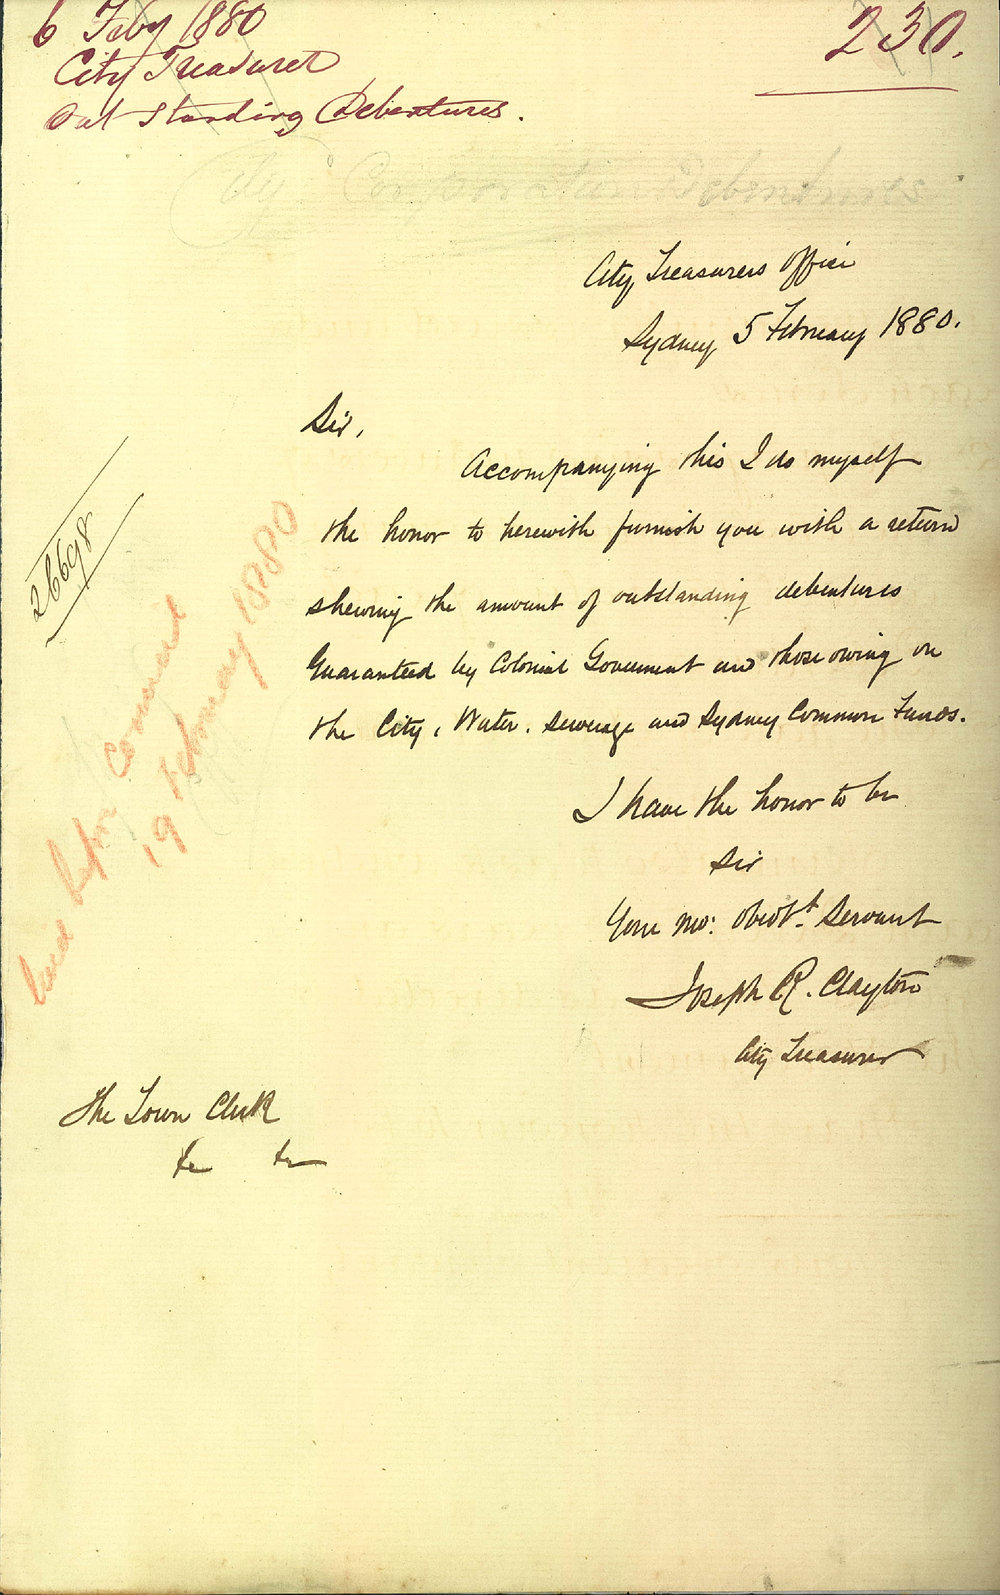 6 Feby 1880
230.
City Treasurer
Out Standing Debentures.
City Corporation Debentures
City Treasurers Office
Sydney 5 February 1880.
Sir,
Accompanying this I do myself
the honor to herewith furnish you with a return
shewing the amount of outstanding debentures
Guaranteed by Colonial Government and those owing on
the City, Water, Sewerage and Sydney Common Funds.
I have the honor to be
Sir
Your Mo: Obedt. Servant
Joseph R. Clayton
City Treasurer
The Town Clerk
&c &c
26698
laid before Council
19 February 1880